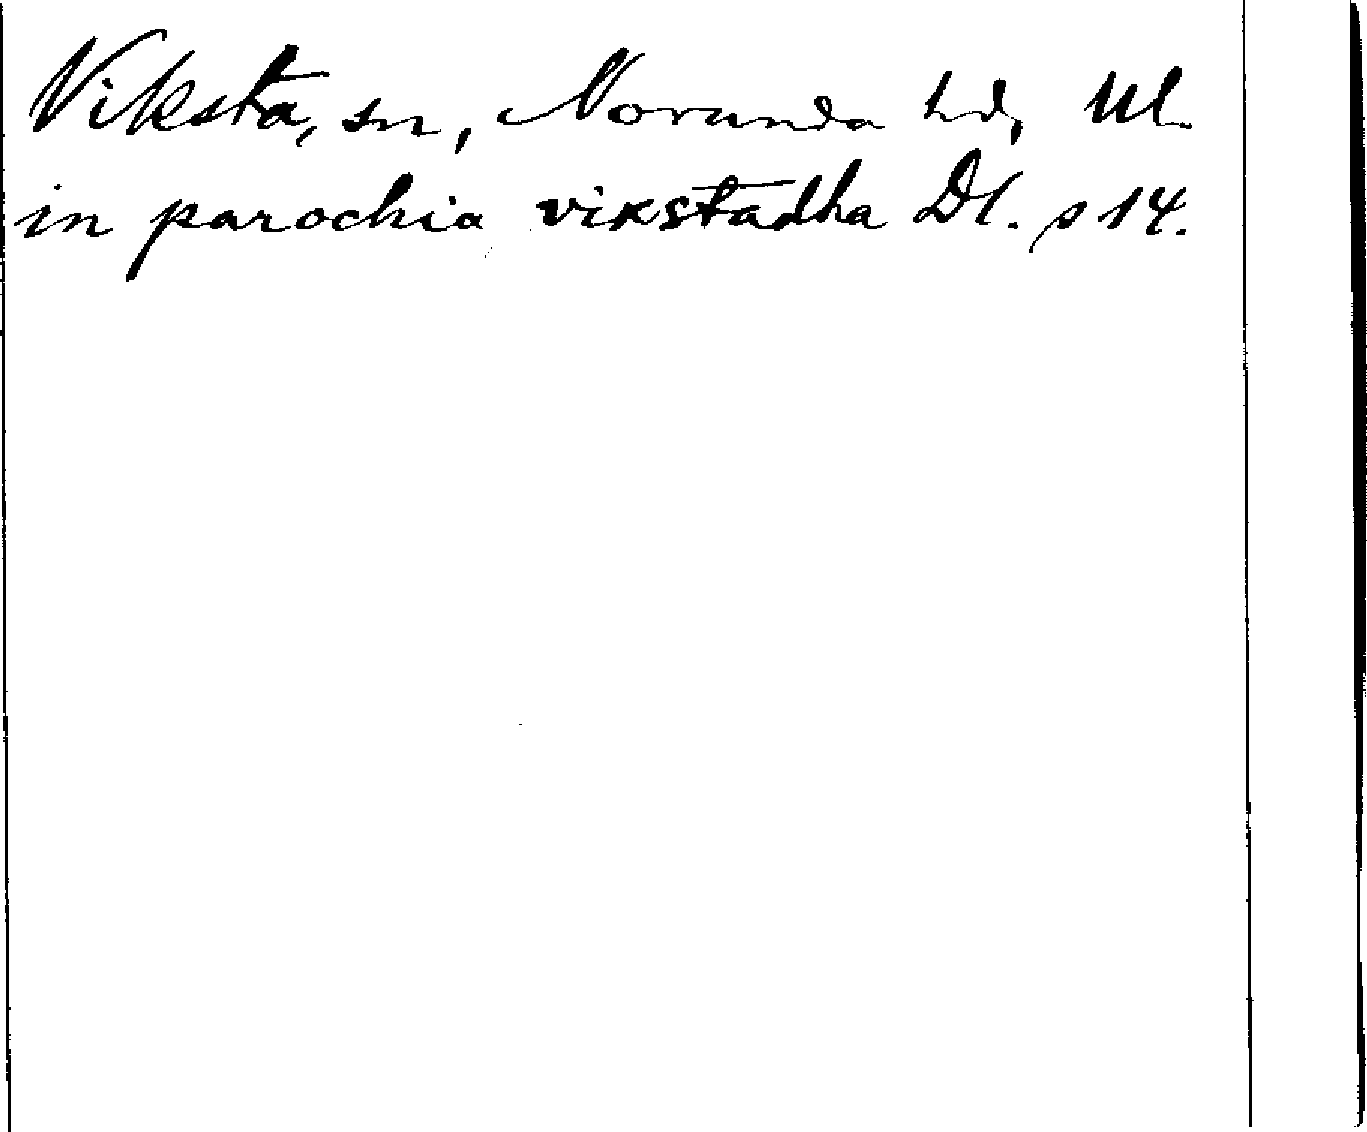 Viksta, sn, Norunda hd, Ul.
in parochia vikstadha Dl. s 14.